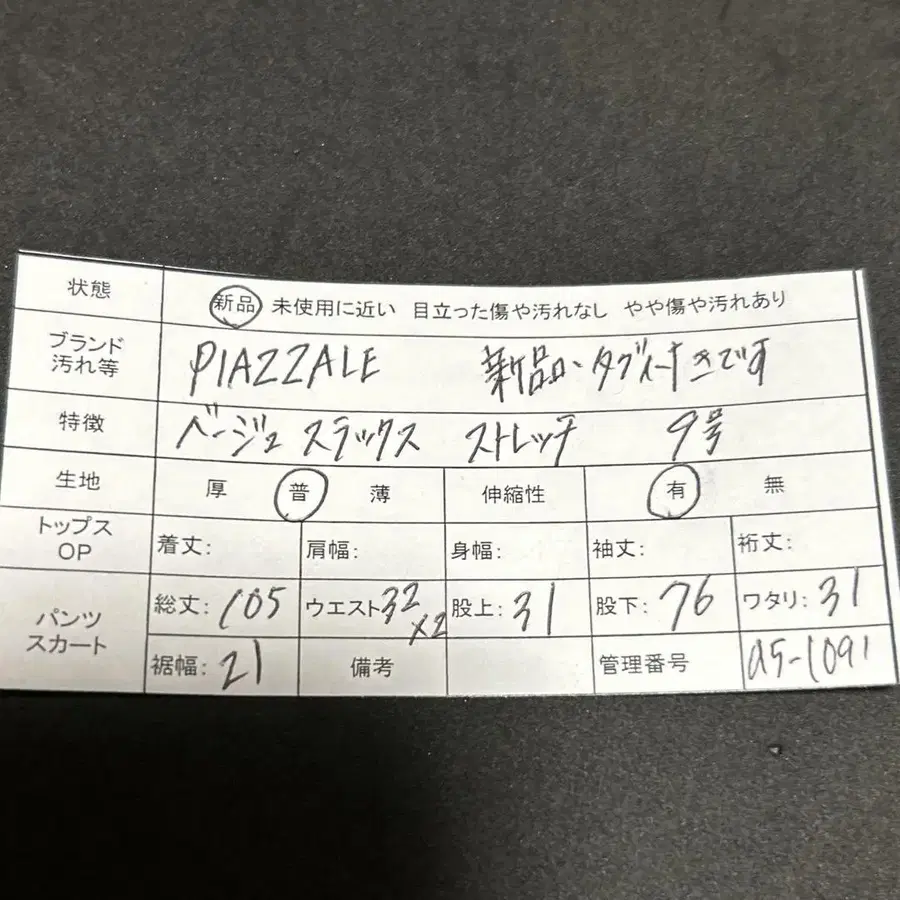 状態 新品 未使用に近い 目立った傷や汚れなし やや傷や汚れあり
ブランド 汚れ等 PIAZZALE 新品、タグ付きです
特徴 ベージュ スラックス ストレッチ 9号
生地 厚 普 薄 伸縮性 有 無
トップス OP 着丈: 肩幅: 身幅: 袖丈: 裄丈:
パンツ スカート 総丈: 105 ウエスト 32×2 股上: 31 股下: 76 ワタリ: 31
裾幅: 21 備考 管理番号 a5-1091